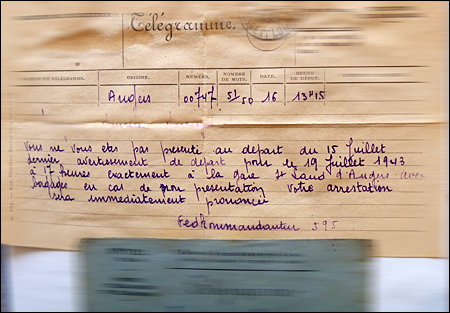 Télégramme.
ORIGINE. NUMÉRO. NOMBRE DE MOTS. DATE. HEURE DE DÉPOT.
Angers 00747 51/50 16 13h15
Vous ne vous etes pas presenté au depart du 15 Juillet
dernier, avertissement de depart pour le 19 Juillet 1943
à 17 heures exactement à la gare St Laud d'Angers avec
bagages en cas de non presentation votre arrestation
sera immediatement prononcée
Feldkommandantur 595